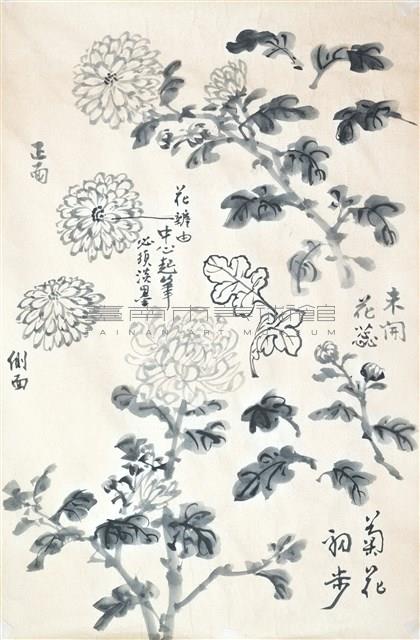 正面
花瓣由
中心起筆
必須淡墨
側面
未開
花蕊
菊花
初步
臺南市美術館
TAINAN ART MUSEUM